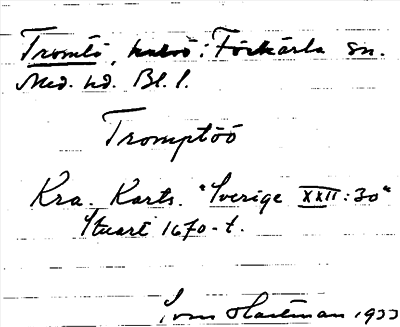 Tromtö, halvö i Förkärla sn.
Med. hd. Bl. l.
Tromptöö
Kra. Karts. "Sverige XXII:30"
Stuart 1670-t.
Sven Hartman 1933